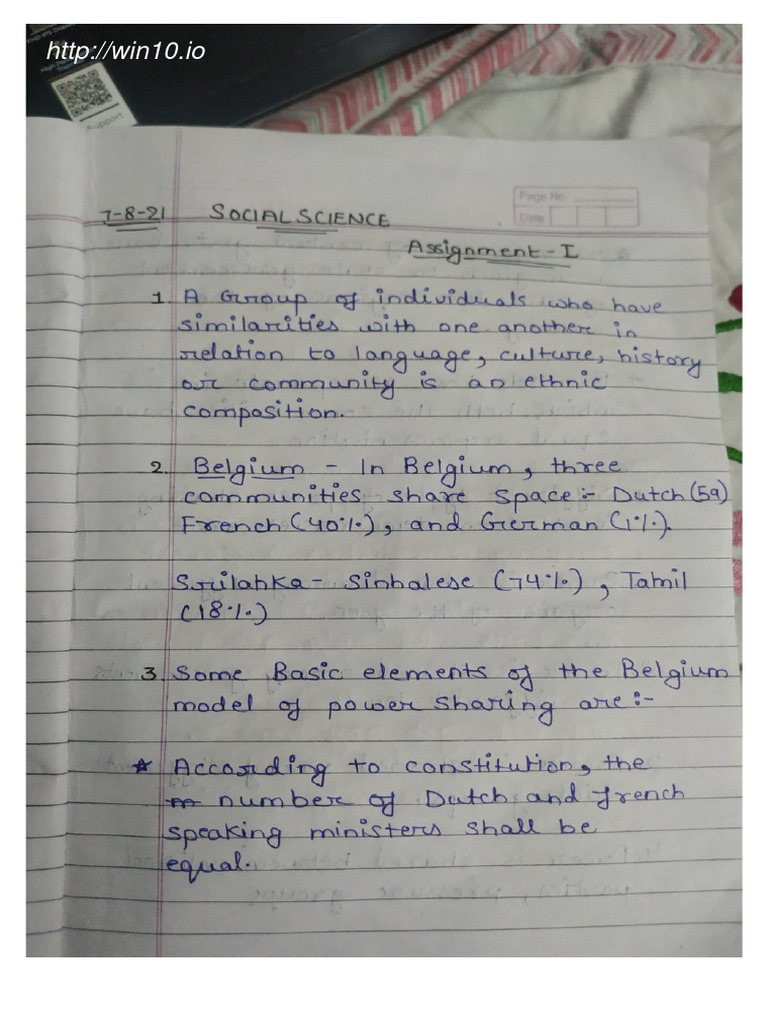 http://win10.io
Support
Page No.
Date
7-8-21 SOCIAL SCIENCE
Assignment - I
1. A Group of individuals who have
similarities with one another in
relation to language, culture, history
or community is an ethnic
composition.
2. Belgium - In Belgium, three
communities share space:- Dutch (59)
French (40%), and German (1%).
Srilanka - Sinhalese (74%), Tamil
(18%)
3 Some Basic elements of the Belgium
model of power sharing are:-
* According to constitution, the
number of Dutch and french
speaking ministers shall be
equal.